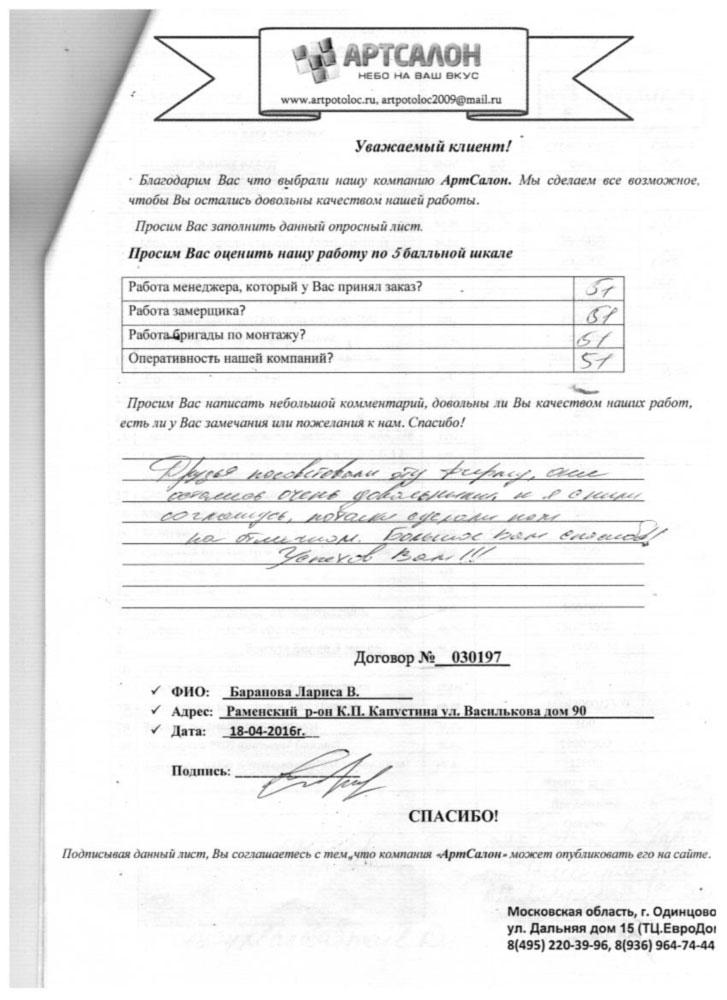 АРТСАЛОН
НЕБО НА ВАШ ВКУС
www.artpotoloc.ru, artpotoloc2009@mail.ru
Уважаемый клиент!
Благодарим Вас что выбрали нашу компанию АртСалон. Мы сделаем все возможное,
чтобы Вы остались довольны качеством нашей работы.
Просим Вас заполнить данный опросный лист.
Просим Вас оценить нашу работу по 5 балльной шкале
Работа менеджера, который у Вас принял заказ? 5!
Работа замерщика? 5!
Работа бригады по монтажу? 5!
Оперативность нашей компаний? 5!
Просим Вас написать небольшой комментарий, довольны ли Вы качеством наших работ,
есть ли у Вас замечания или пожелания к нам. Спасибо!
Друзья посоветовали эту фирму, они
остались очень довольными, и я с ними
соглашусь, потолки сделали нам
на отлично. Большое Вам спасибо!!
Успехов Вам!!!
Договор № 030197
ФИО: Баранова Лариса В.
Адрес: Раменский р-он К.П. Капустина ул. Василькова дом 90
Дата: 18-04-2016г.
Подпись:
СПАСИБО!
Подписывая данный лист, Вы соглашаетесь с тем, что компания «АртСалон» может опубликовать его на сайте.
Московская область, г. Одинцово
ул. Дальняя дом 15 (ТЦ.ЕвроДо
8(495) 220-39-96, 8(936) 964-74-44